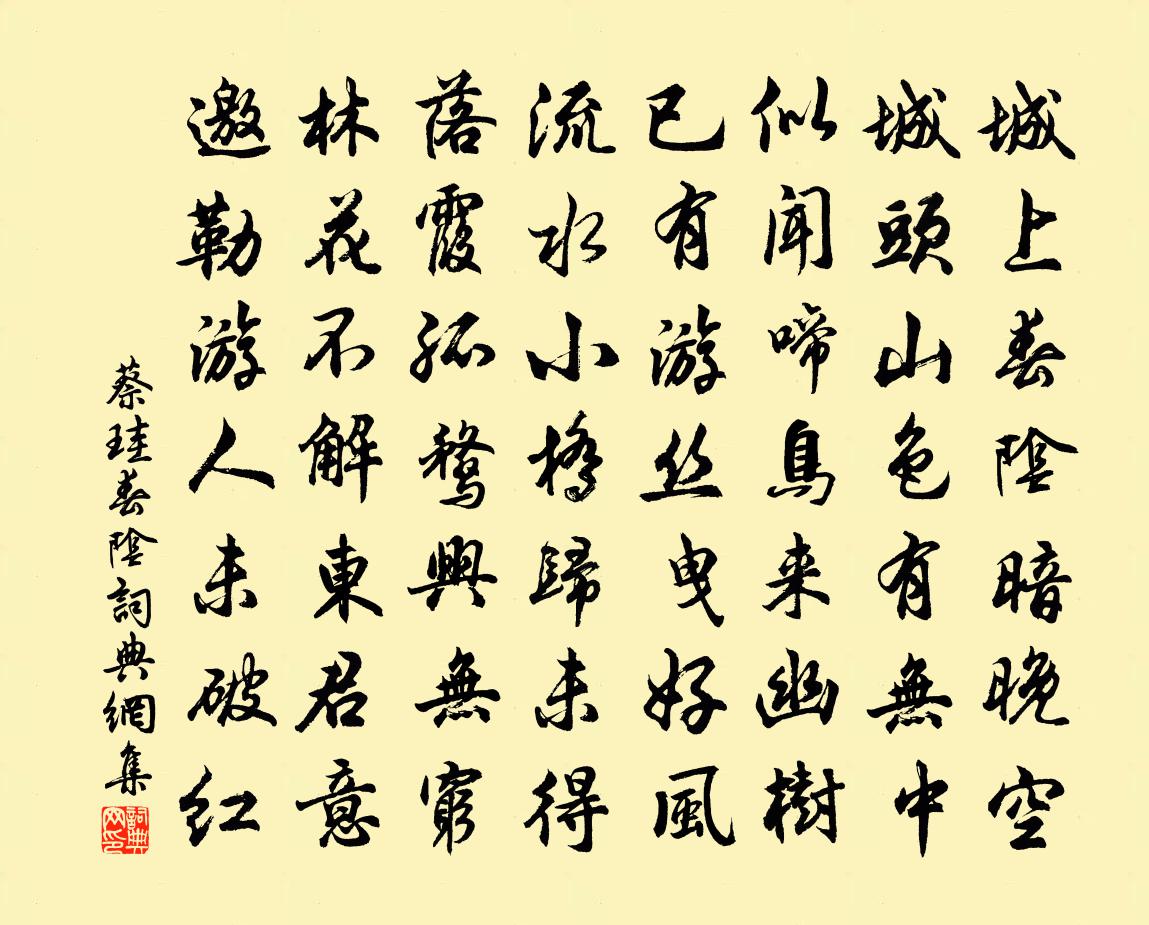 城上春陰暗晚空
城頭山色有無中
似聞啼鳥来幽樹
已有游丝曳好風
流水小橋歸未得
落霞孤鶩興無窮
林花不解東君意
邀勒游人未破红
蔡珪春陰詞典網集
詞典网印